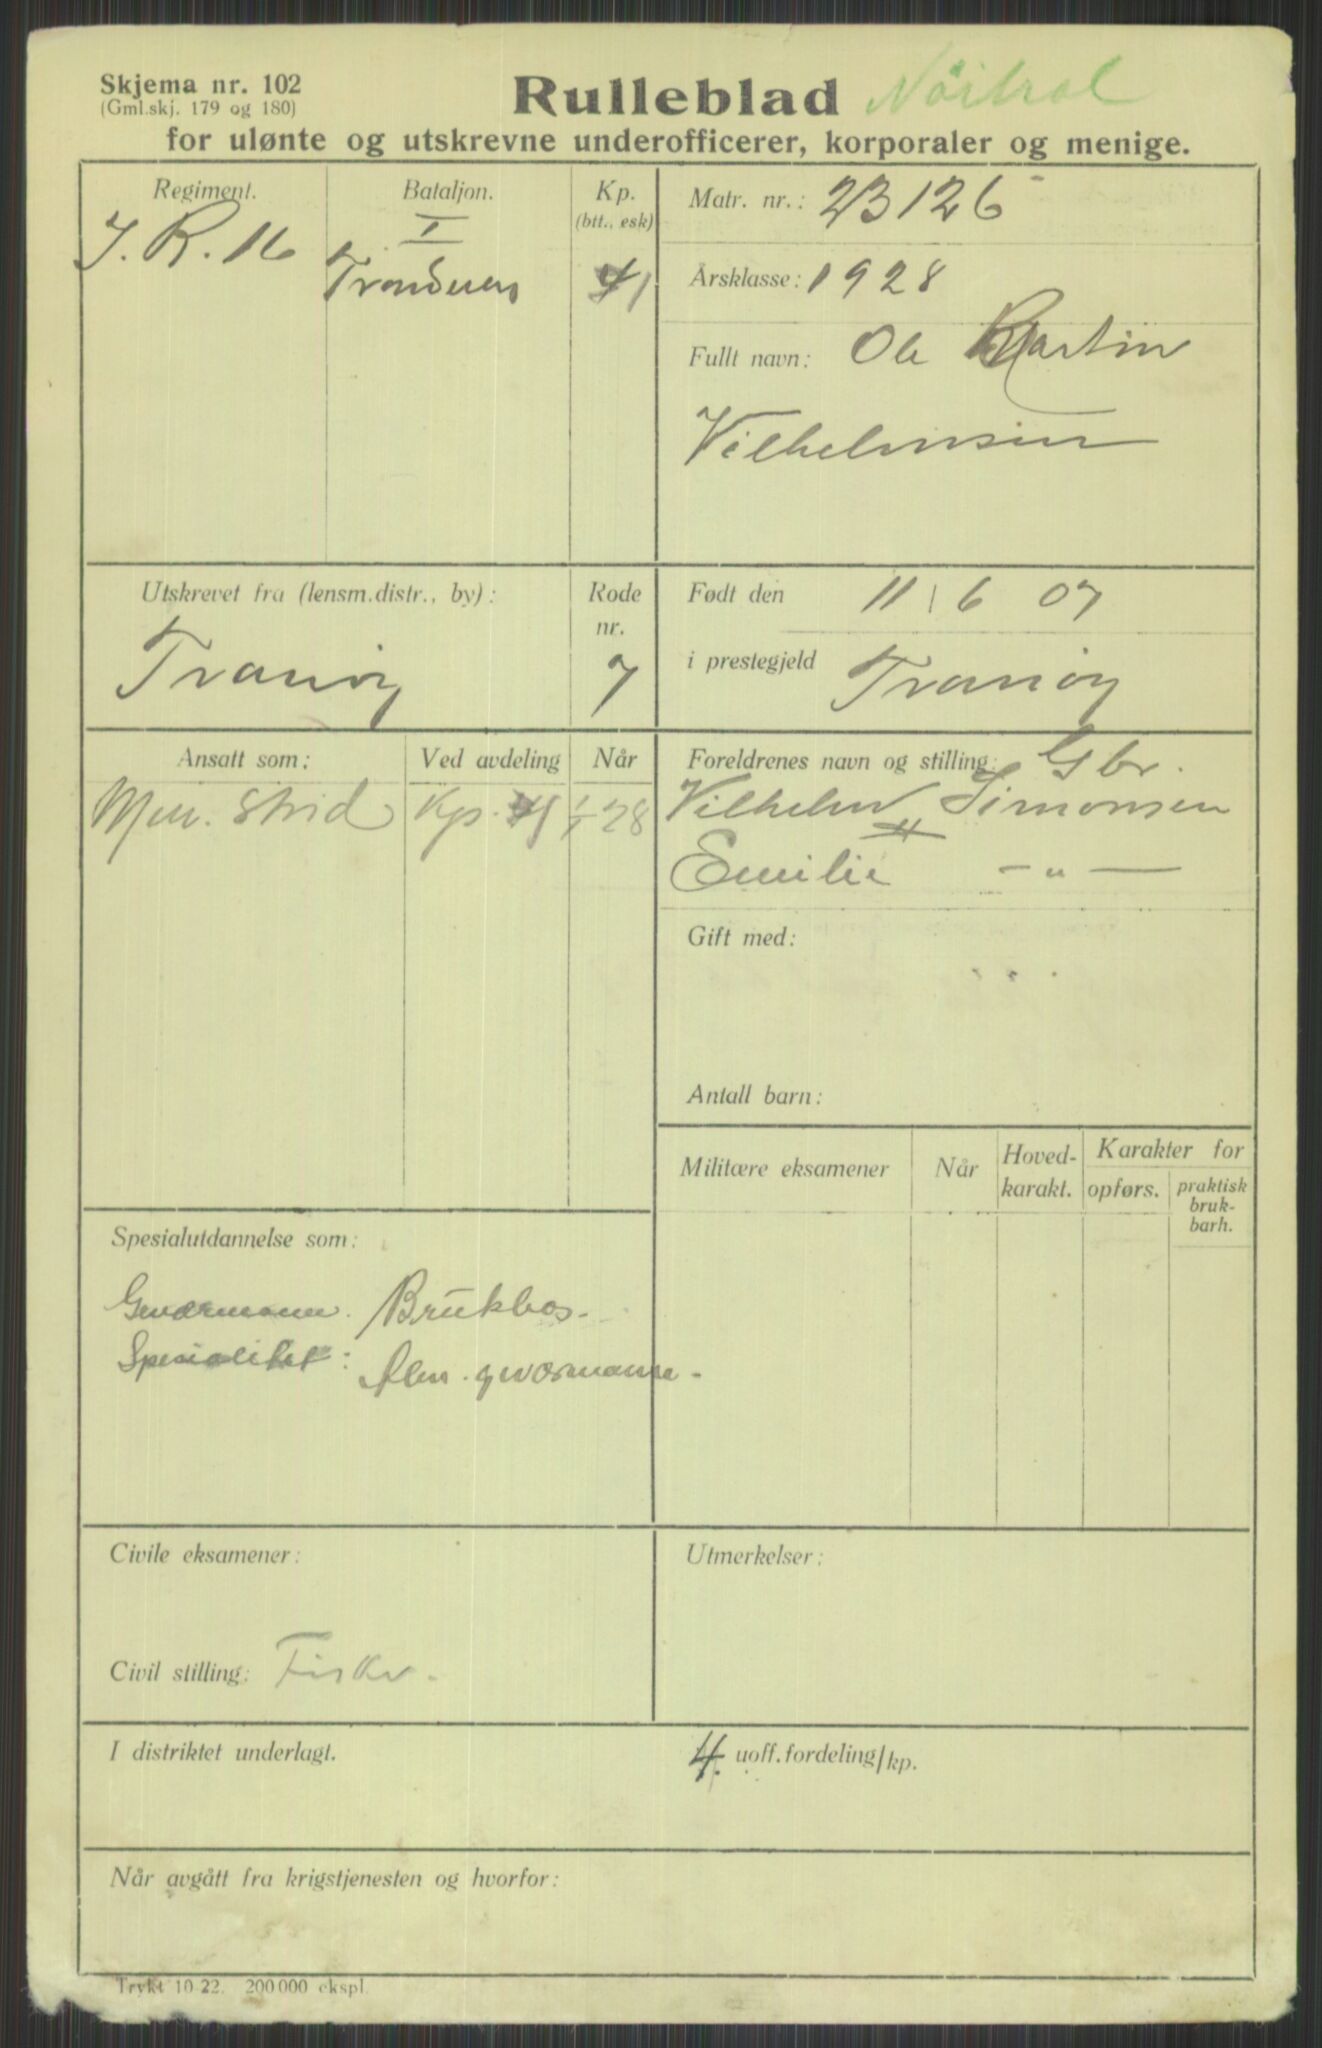 Skjema nr. 102
(Gml.skj. 179 og 180)
Rulleblad Nöitral
for ulønte og utskrevne underofficerer, korporaler og menige.
Regiment. Bataljon. Kp. (btt., esk)
I. R. 16 I Trondenes 1
Matr. nr.: 23126
Årsklasse: 1928
Fullt navn: Ole Martin
Vilhelmsen
Utskrevet fra (lensm.distr., by): Rode nr.
Tranöy 7
Født den 11/6 07
i prestegjeld Tranöy
Ansatt som: Ved avdeling Når
Men. Strid Kp. 1 1/1 28
Foreldrenes navn og stilling: Gbr.
Vilhelm Simonsen
Emilie — " —
Gift med:
Antall barn:
Militære eksamener Når Hoved-karakt. Karakter for
opførs. praktisk bruk-barh.
Spesialutdannelse som:
Geværmann. Brukbar.
Spesialitet: Alm. geværmann.
Civile eksamener:
Utmerkelser:
Civil stilling: Fisker.
I distriktet underlagt.
4. uoff.fordeling/kp.
Når avgått fra krigstjenesten og hvorfor:
Trykt 10-22. 200 000 ekspl.